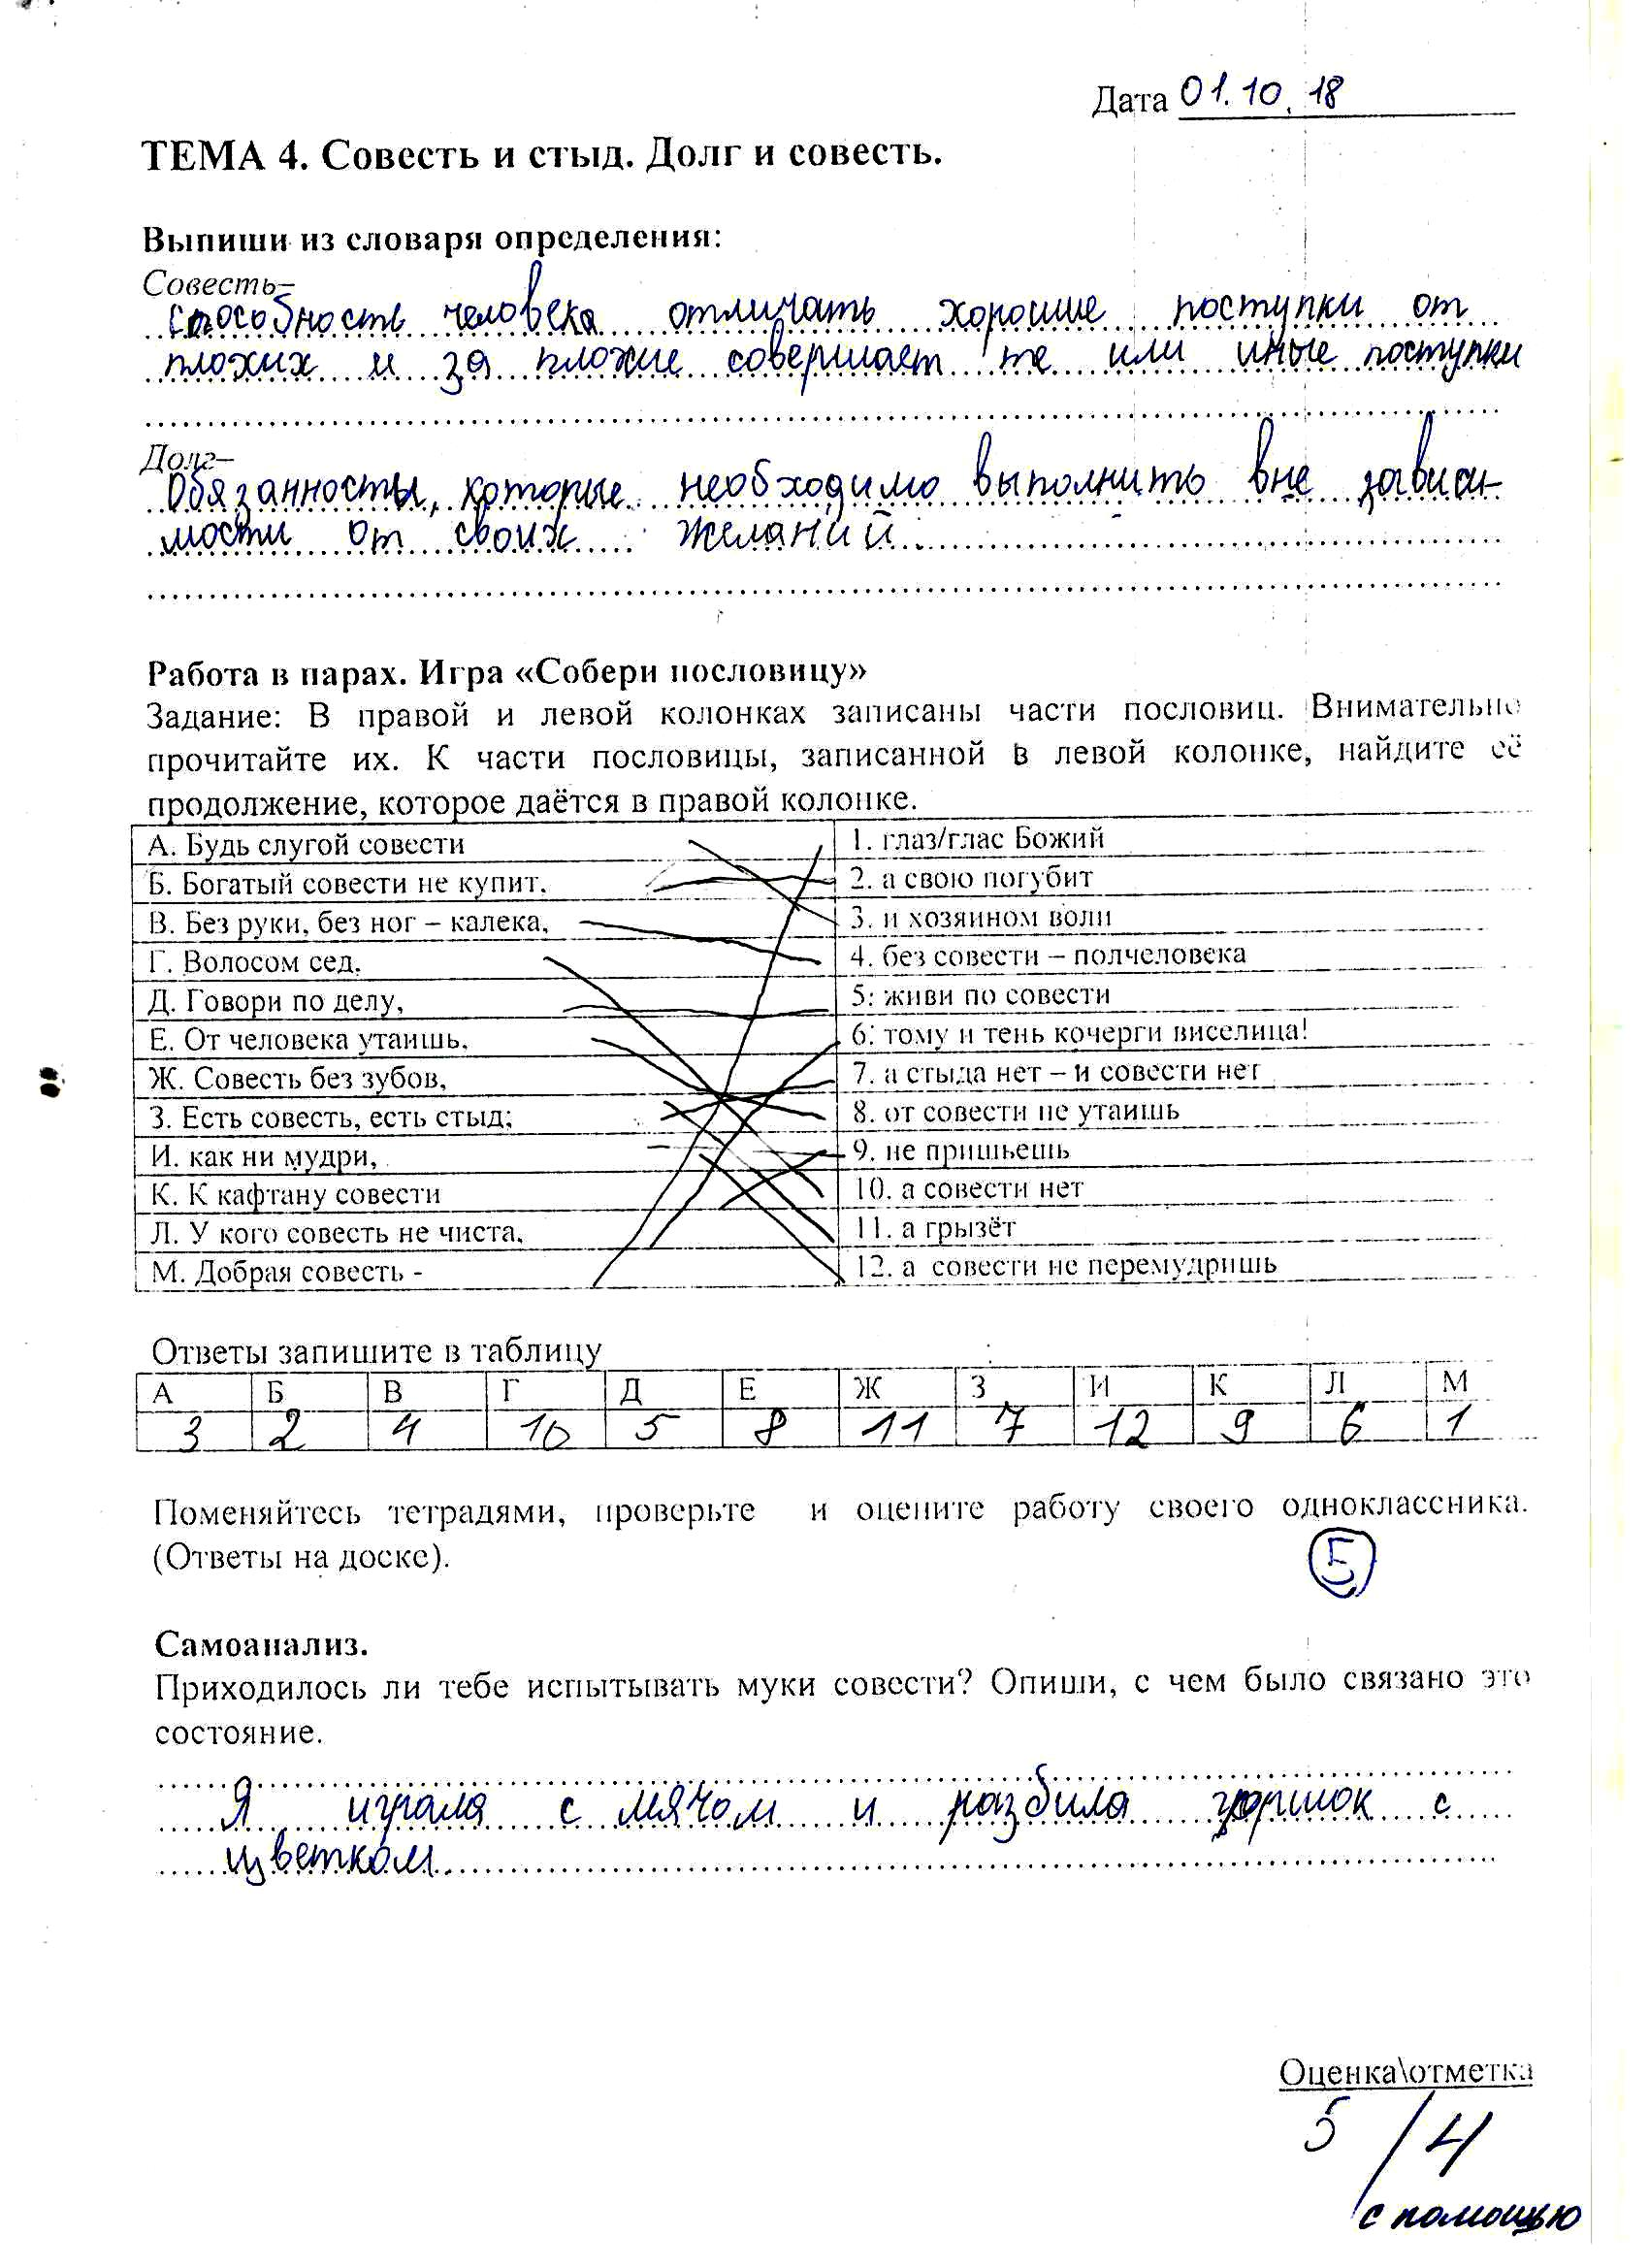 Дата 01.10.18
ТЕМА 4. Совесть и стыд. Долг и совесть.
Выпиши из словаря определения:
Совесть–
способность человека отличать хорошие поступки от
плохих и за плохие совершает те или иные поступки
Долг–
Обязанность, которые необходимо выполнить вне зависи-
мости от своих желаний.
Работа в парах. Игра «Собери пословицу»
Задание: В правой и левой колонках записаны части пословиц. Внимательно
прочитайте их. К части пословицы, записанной в левой колонке, найдите её
продолжение, которое даётся в правой колонке.
А. Будь слугой совести 1. глаз/глас Божий
Б. Богатый совести не купит, 2. а свою погубит
В. Без руки, без ног – калека, 3. и хозяином воли
Г. Волосом сед, 4. без совести – полчеловека
Д. Говори по делу, 5: живи по совести
Е. От человека утаишь, 6: тому и тень кочерги виселица!
Ж. Совесть без зубов, 7. а стыда нет – и совести нет
З. Есть совесть, есть стыд; 8. от совести не утаишь
И. как ни мудри, 9. не пришьешь
К. К кафтану совести 10. а совести нет
Л. У кого совесть не чиста, 11. а грызёт
М. Добрая совесть - 12. а совести не перемудришь
Ответы запишите в таблицу
А Б В Г Д Е Ж З И К Л М
3 2 4 10 5 8 11 7 12 9 6 1
Поменяйтесь тетрадями, проверьте и оцените работу своего одноклассника.
(Ответы на доске).
5
Самоанализ.
Приходилось ли тебе испытывать муки совести? Опиши, с чем было связано это
состояние.
Я играла с мячом и разбила горшок с
цветком
Оценка\отметка
5 / 4
с помощью